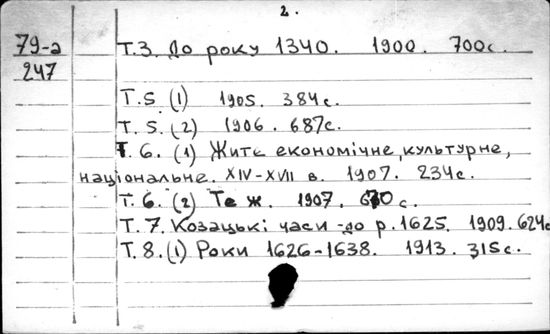 2.
79-а
247
Т.3. До року 1340. 1900. 700с.
Т.5 (1) 1905. 384с.
Т.5.(2) 1906. 687с.
Т.6. (1) Житє економічне, культурне,
національне. XIV-XVII в. 1907. 234с.
Т.6. (2) Те ж. 1907. с.
Т.7. Козацькі часи -до р.1625. 1909. 624с
Т.8.(1) Роки 1626-1638. 1913. 315с.